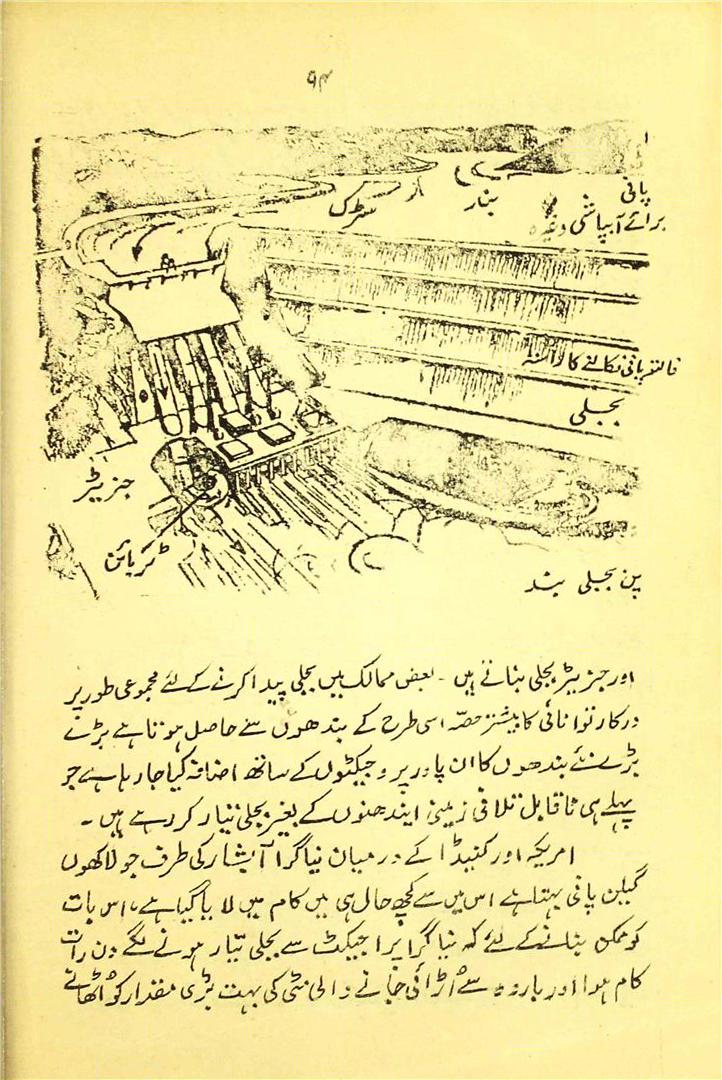 ۹۴
پانی
برائے آبپاشی وغیرہ
سڑک
فالتو پانی نکالنے کا راستہ
بجلی
جنریٹر
ٹربائن
پن بجلی بند
اور جنریٹر بجلی بناتے ہیں ۔ بعض ممالک میں بجلی پیدا کرنے کے لئے مجموعی طور پر
درکار توانائی کا بیشتر حصّہ اسی طرح کے بندھوں سے حاصل ہوتا ہے بڑے
بڑے نئے بندھوں کا ان پاور پروجیکٹوں کے ساتھ اضافہ کیا جا رہا ہے جو
پہلے ہی ناقابل تلافی زمینی ایندھنوں کے بغیر بجلی تیار کر رہے ہیں ۔
امریکہ اور کنیڈا کے درمیان نیاگرا آبشار کی طرف جو لاکھوں
گیلن پانی بہتا ہے اس میں سے کچھ حال ہی میں کام میں لایا گیا ہے، اس بات
کو ممکن بنانے کے لئے کہ نیاگرا پراجیکٹ سے بجلی تیار ہونے لگے دن رات
کام ہوا اور بارود سے اُڑائی جانے والی مٹی کی بہت بڑی مقدار کو اُٹھانے